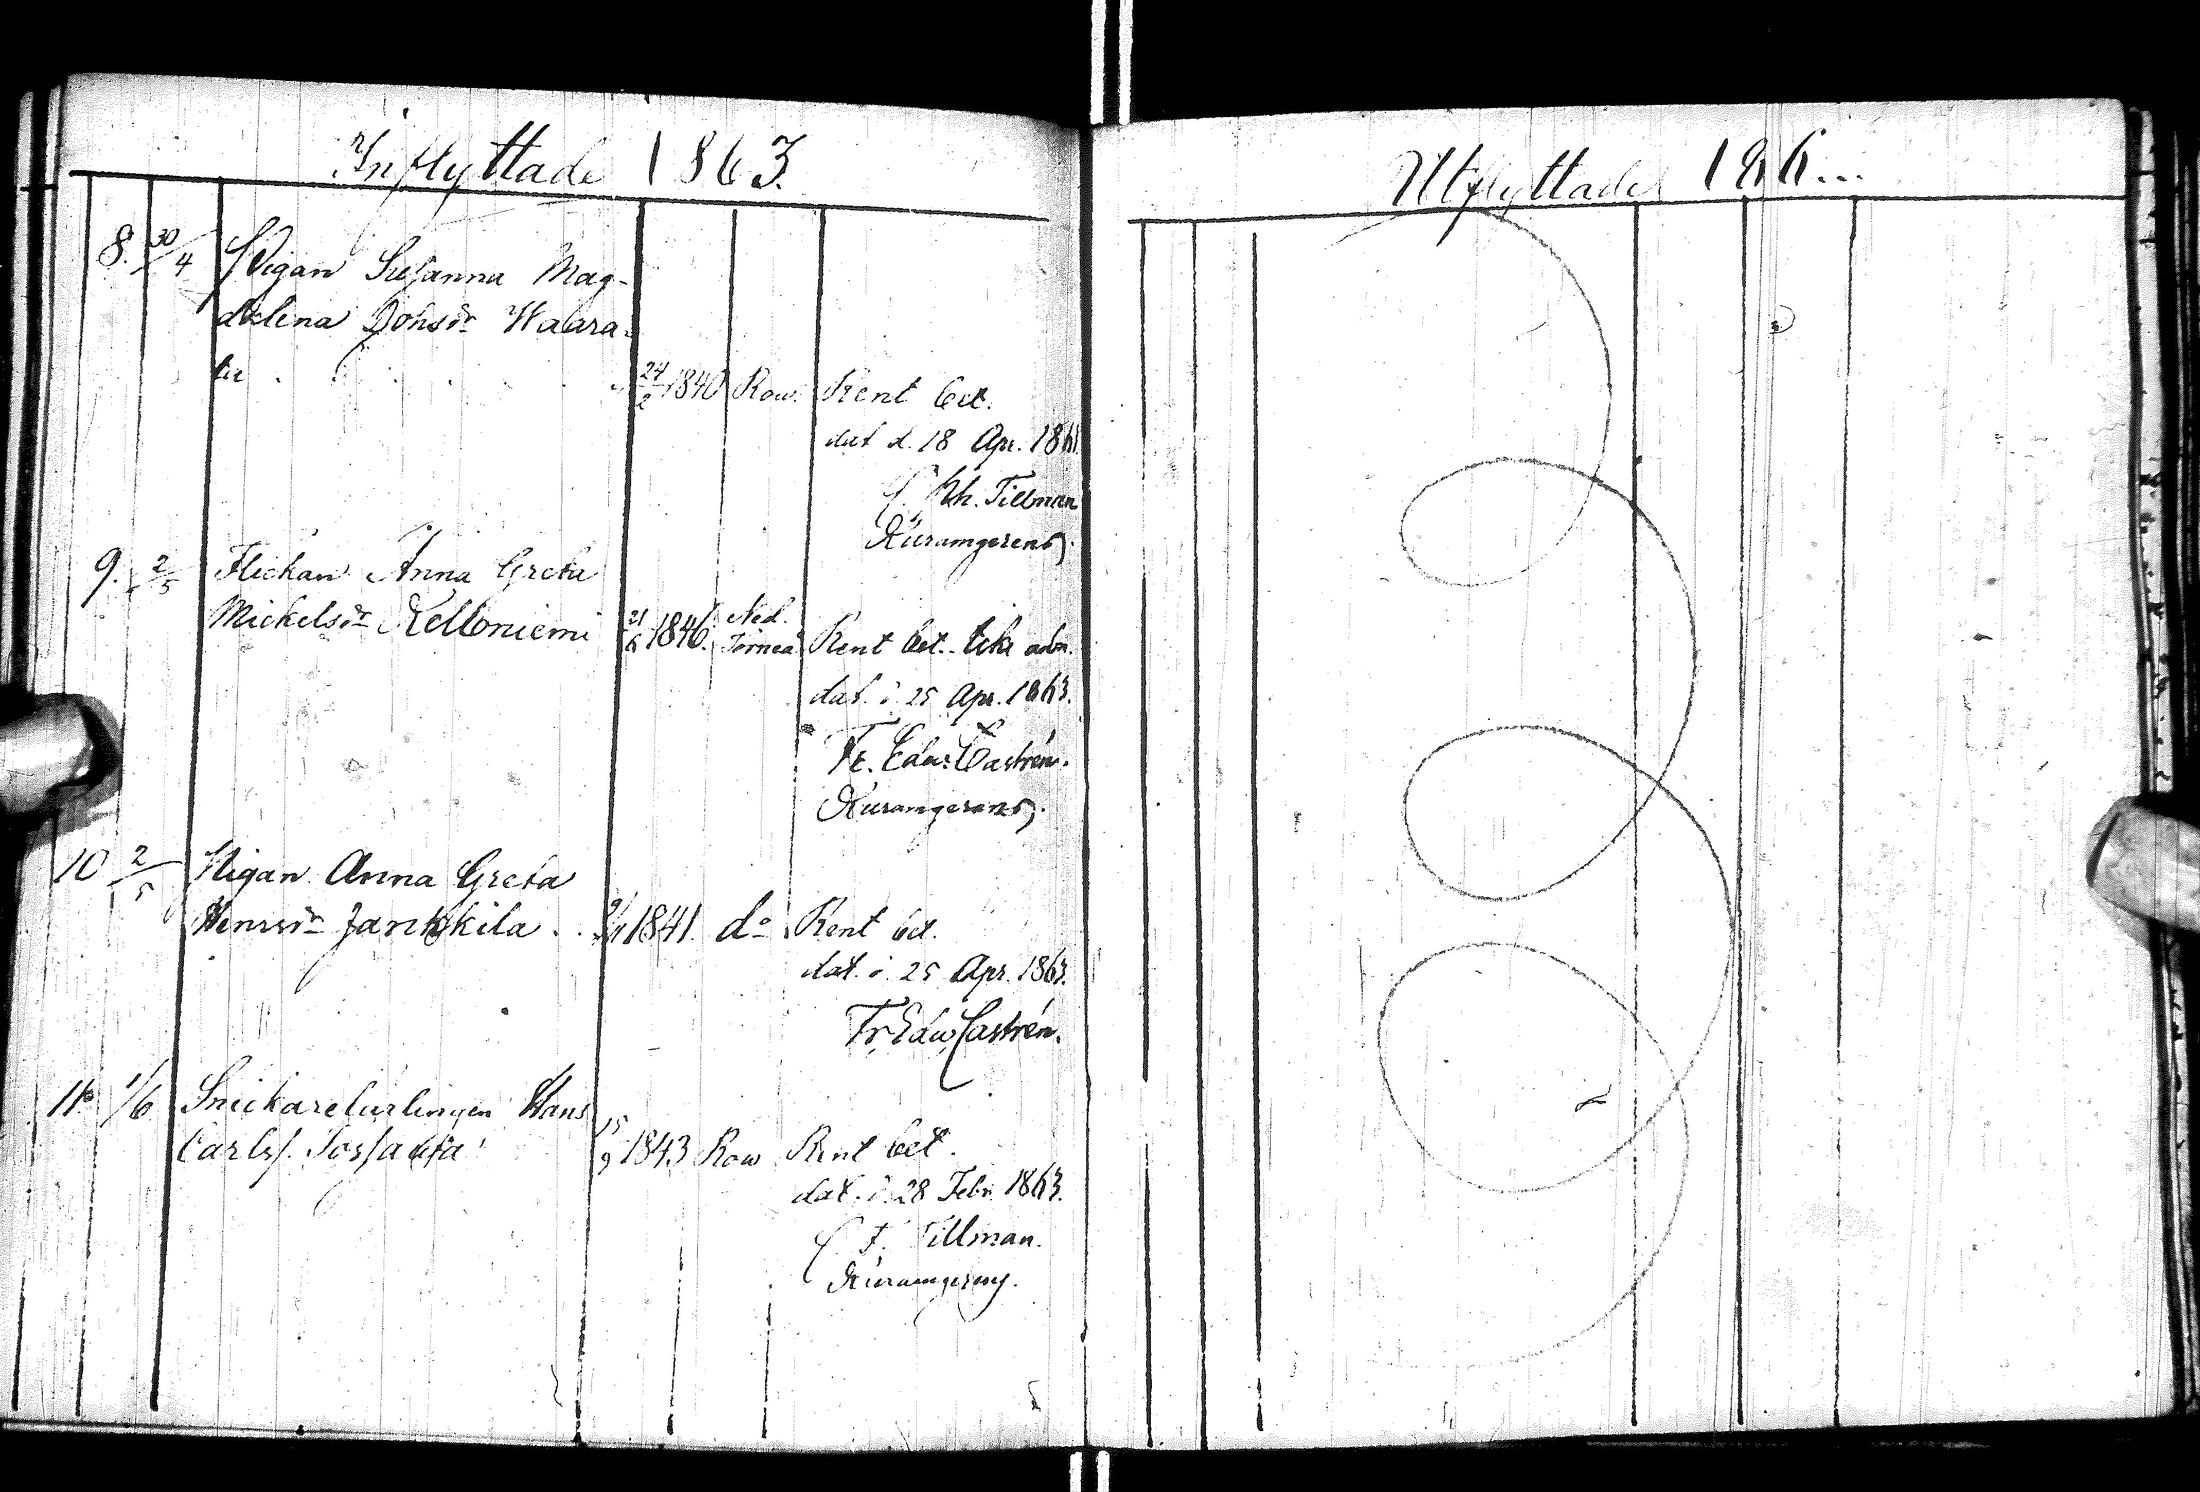 Inflyttade 1863.
8. 30/4 Pigan Susanna Mag-
dalena Johsdr Waara-
la . . . . . 24/2 1840 Row. Rent bet.
dat d. 18 Apr. 1863
Tillman
Kyrkoherdens
9. 2/5 Flickan Anna Greta
Mickelsdr Kelloniemi 21/6 1846. Ned. Torneå Rent bet. icke adm.
dat. d. 25 Apr. 1863.
Fr. Edw. Castrén.
10 2/5 Pigan Anna Greta
Henrsdr Jankkila . . 1841. do Rent bet.
dat. d. 25 Apr. 1863.
Fr. Edw. Castrén.
11 1/6 Snickarelärlingen Hans
Carlss. 15/9 1843 Row Rent bet.
dat. d. 28 Febr. 1863.
Tillman.
Utflyttade 186...